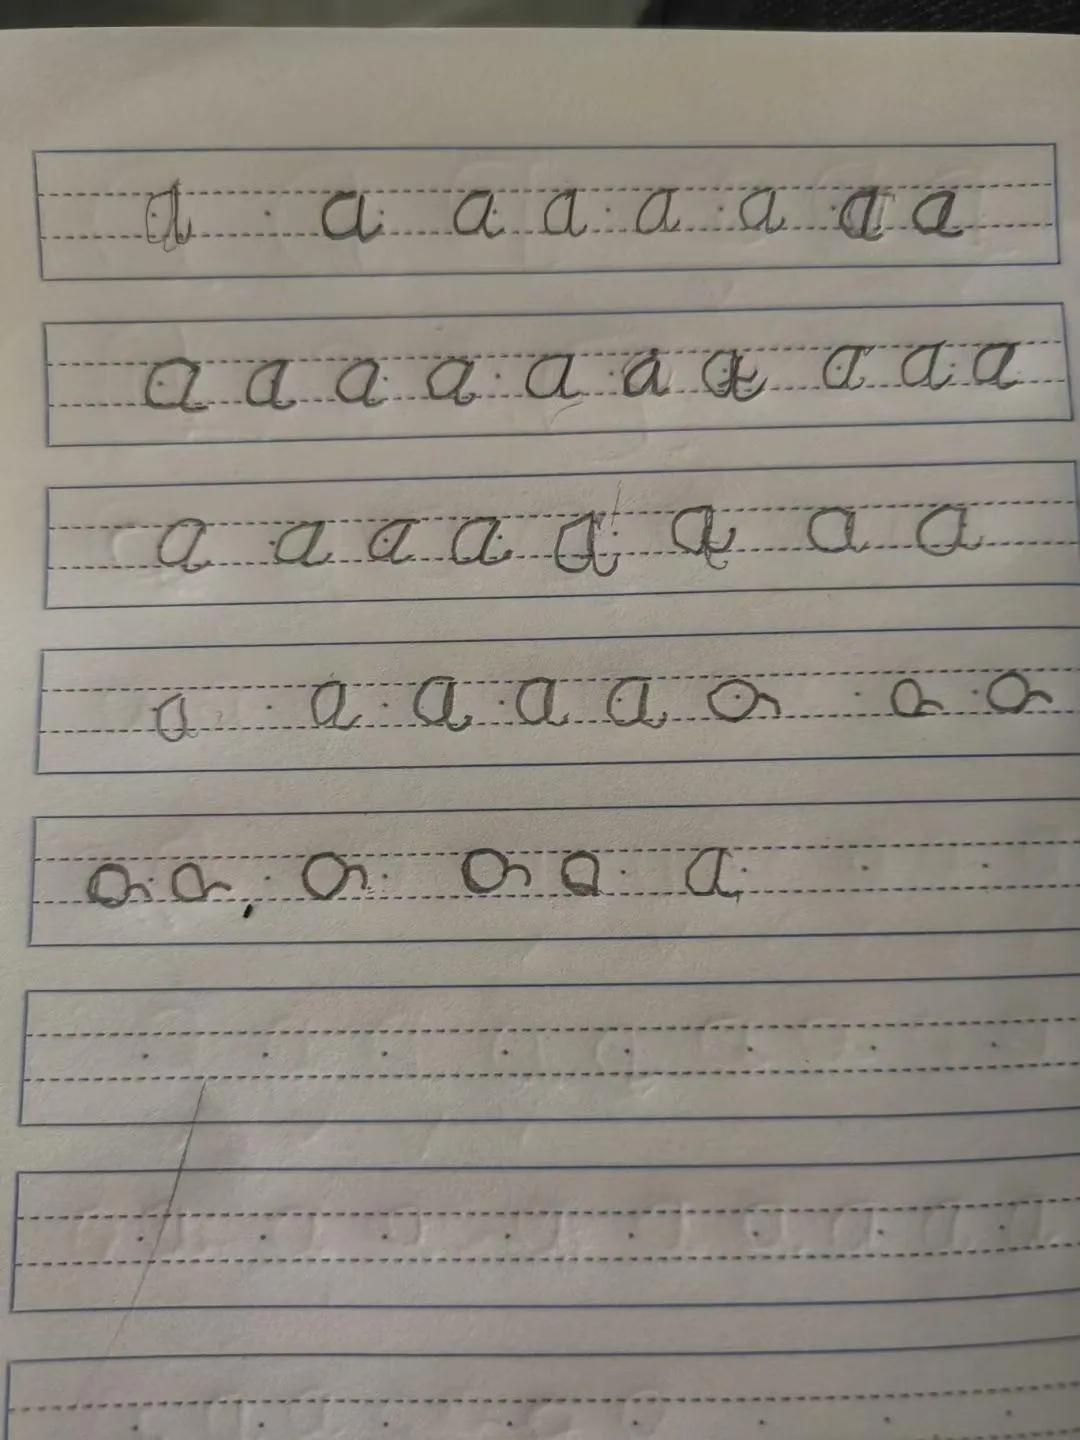 a a a a a a a a
a a a a a a a a a a
a a a a a a a a
a a a a a a a a
a a a a a a